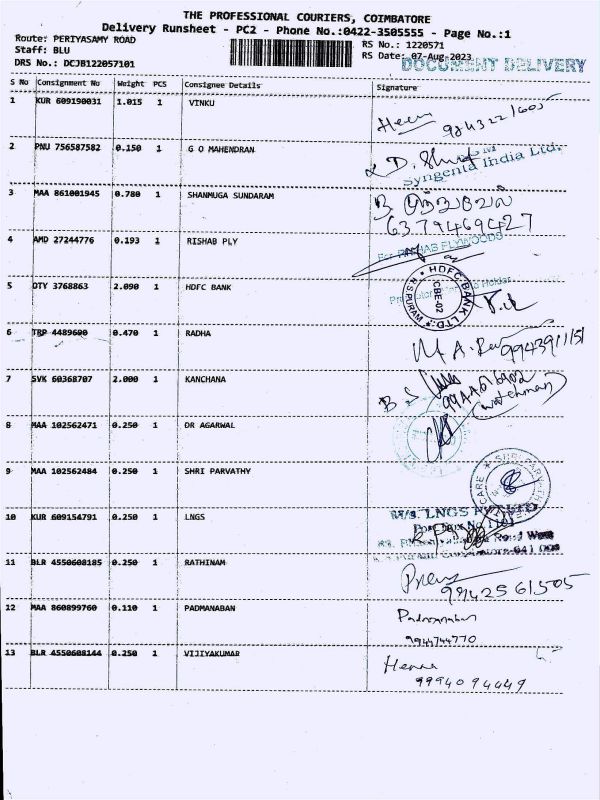 THE PROFESSIONAL COURIERS, COIMBATORE
Delivery Runsheet - PC2 - Phone No.:0422-3505555 - Page No.:1
Route: PERIYASAMY ROAD
RS No.: 1220571
Staff: BLU
RS Date: 07-Aug-2023
DRS No.: DCJB122057101
DOCUMENT DELIVERY
S No Consignment No Weight PCS Consignee Details Signature
1 KUR 609190031 1.015 1 VINKU
2 PNU 756587582 0.150 1 G O MAHENDRAN
Syngenta India Ltd.
3 MAA 861001945 0.780 1 SHANMUGA SUNDARAM
6379469427
4 AMD 27244776 0.193 1 RISHAB PLY
For RISHAB PLYWOODS
5 DTY 3768863 2.090 1 HDFC BANK
HDFC BANK LTD. R.S.PURAM CBE-02
6 TRP 4489600 0.470 1 RADHA
9943911151
7 SVK 60368707 2.000 1 KANCHANA
(watchman)
8 MAA 102562471 0.250 1 DR AGARWAL
9 MAA 102562484 0.250 1 SHRI PARVATHY
10 KUR 609154791 0.250 1 LNGS
M/s. LNGS
11 BLR 4550608185 0.250 1 RATHINAM
9942561505
12 MAA 860899760 0.110 1 PADMANABAN
Padmanaban
9944744770
13 BLR 4550608144 0.250 1 VIJIYAKUMAR
Hema
9994094449